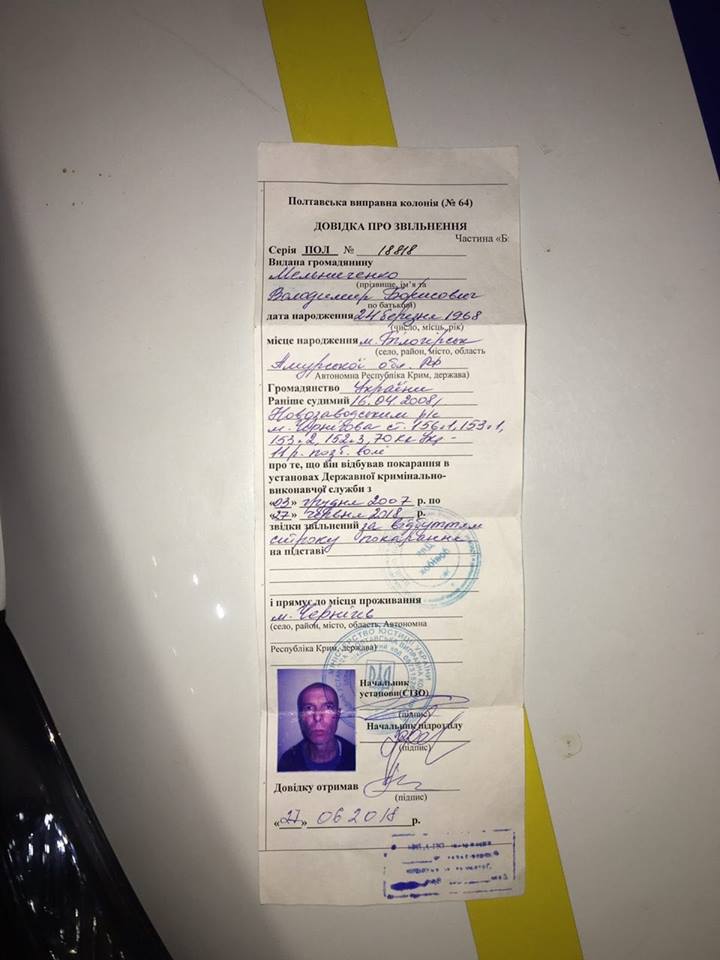 Полтавська виправна колонія (№ 64)
ДОВІДКА ПРО ЗВІЛЬНЕННЯ
Частина «Б
Серія ПОЛ № 18818
Видана громадянину
Мельниченко
(прізвище, ім'я та
Володимир Борисович
по батькові)
дата народження 24 березня 1968
(число, місяць, рік)
місце народження м. Білогірськ
(село, район, місто, область
Амурської обл. РФ
Автономна Республіка Крим, держава)
Громадянство України
Раніше судимий 16.04.2008,
Новозаводським р/с
м. Чернігова ст. 156ч1, 153ч1,
153ч2, 152ч3, 70 КК Укр -
11 р. позб. волі
про те, що він відбував покарання в
установах Державної кримінально-
виконавчої служби з
«03» грудня 2007 р. по
«27» червня 2018 р.
звідки звільнений за відбуттям
строку покарання
на підставі
і прямує до місця проживання
м. Чернігів
(село, район, місто, область, Автономна
Республіка Крим, держава)
МІНІСТЕРСТВО ЮСТИЦІЇ УКРАЇНИ
Начальник
установи(СІЗО)
(підпис)
Начальник підрозділу
(підпис)
Довідку отримав
(підпис)
«27» 06 2018 р.